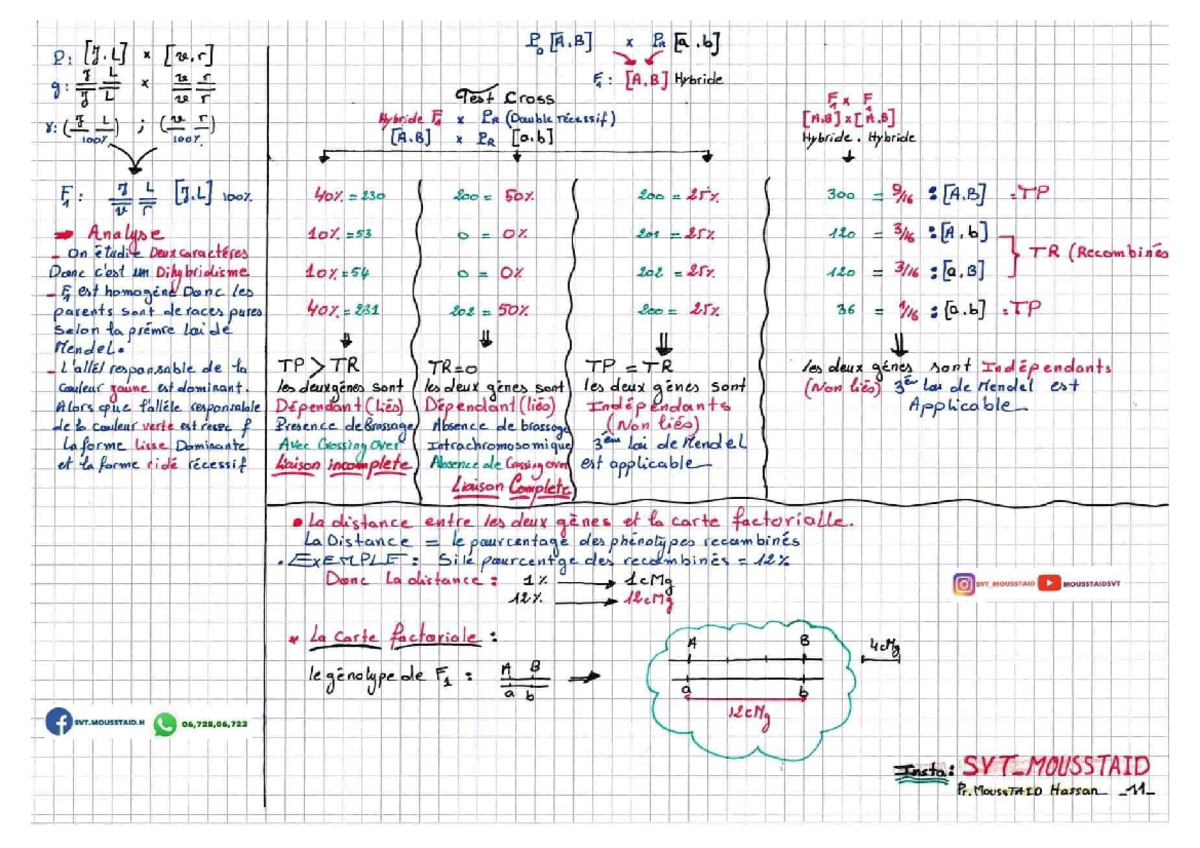 P: [J.L] × [v,r]
g: J/J L/L × v/v r/r
γ: (J L) ; (v r)
100% 100%.
F1 : J/v L/r [J.L] 100%.
➡ Analyse
- On étudie Deux caractéres
Donc c'est un Dihybridisme
- F1 est homogéne Donc les
parents sont de races pures
Selon la prémre Loi de
Mendel.
- L'allél responsable de la
Couleur jaune est dominant.
Alors que l'alléle responsable
de la couleur verte est réssc f
La forme lisse Dominante
et la forme ridé récessif
SVT.MOUSSTAID.H 06,728,06,723
P0 [A.B] × PR [a.b]
F1 : [A.B] Hybride
Test Cross
Hybride F1 × PR (Double récessif)
[A.B] × PR [a.b]
F1 × F1
[A.B] × [A.B]
Hybride . Hybride
40% = 230
10% = 53
10% = 54
40% = 231
TP > TR
les deux génes sont
Dépendant (liés)
Presence de Brassage
Avec Crossing Over
Liaison incomplete
200 = 50%
0 = 0%
0 = 0%
202 = 50%
TR=0
les deux gènes sont
Dépendant (liés)
Absence de brassage
Intrachromosomique
Absence de Crossing Over
Liaison Complete
200 = 25%
201 = 25%
202 = 25%
200 = 25%
TP = TR
les deux gènes sont
Indépendants
(Non liés)
3ém loi de Mendel
est applicable
300 = 9/16 : [A.B] = TP
120 = 3/16 : [A.b]
TR (Recombinés
120 = 3/16 : [a.B]
36 = 1/16 : [a.b] = TP
les deux génes sont Indépendants
(Non liés) 3ém Loi de Mendel est
Applicable
• La distance entre les deux gènes et la carte factorialle.
La Distance = le pourcentage des phénotypes recombinés
. EXEMPLE : Si le pourcentge des recombinés = 12%
Donc La distance : 1% → 1cMg
12% → 12cMg
SVT_MOUSSTAID MOUSSTAIDSVT
* La Carte factoriale :
le génotype de F1 : A B
a b
A B
a b
12cMg
4cMg
Insta: SVT_MOUSSTAID
Pr. MOUSSTAID Hassan _11_